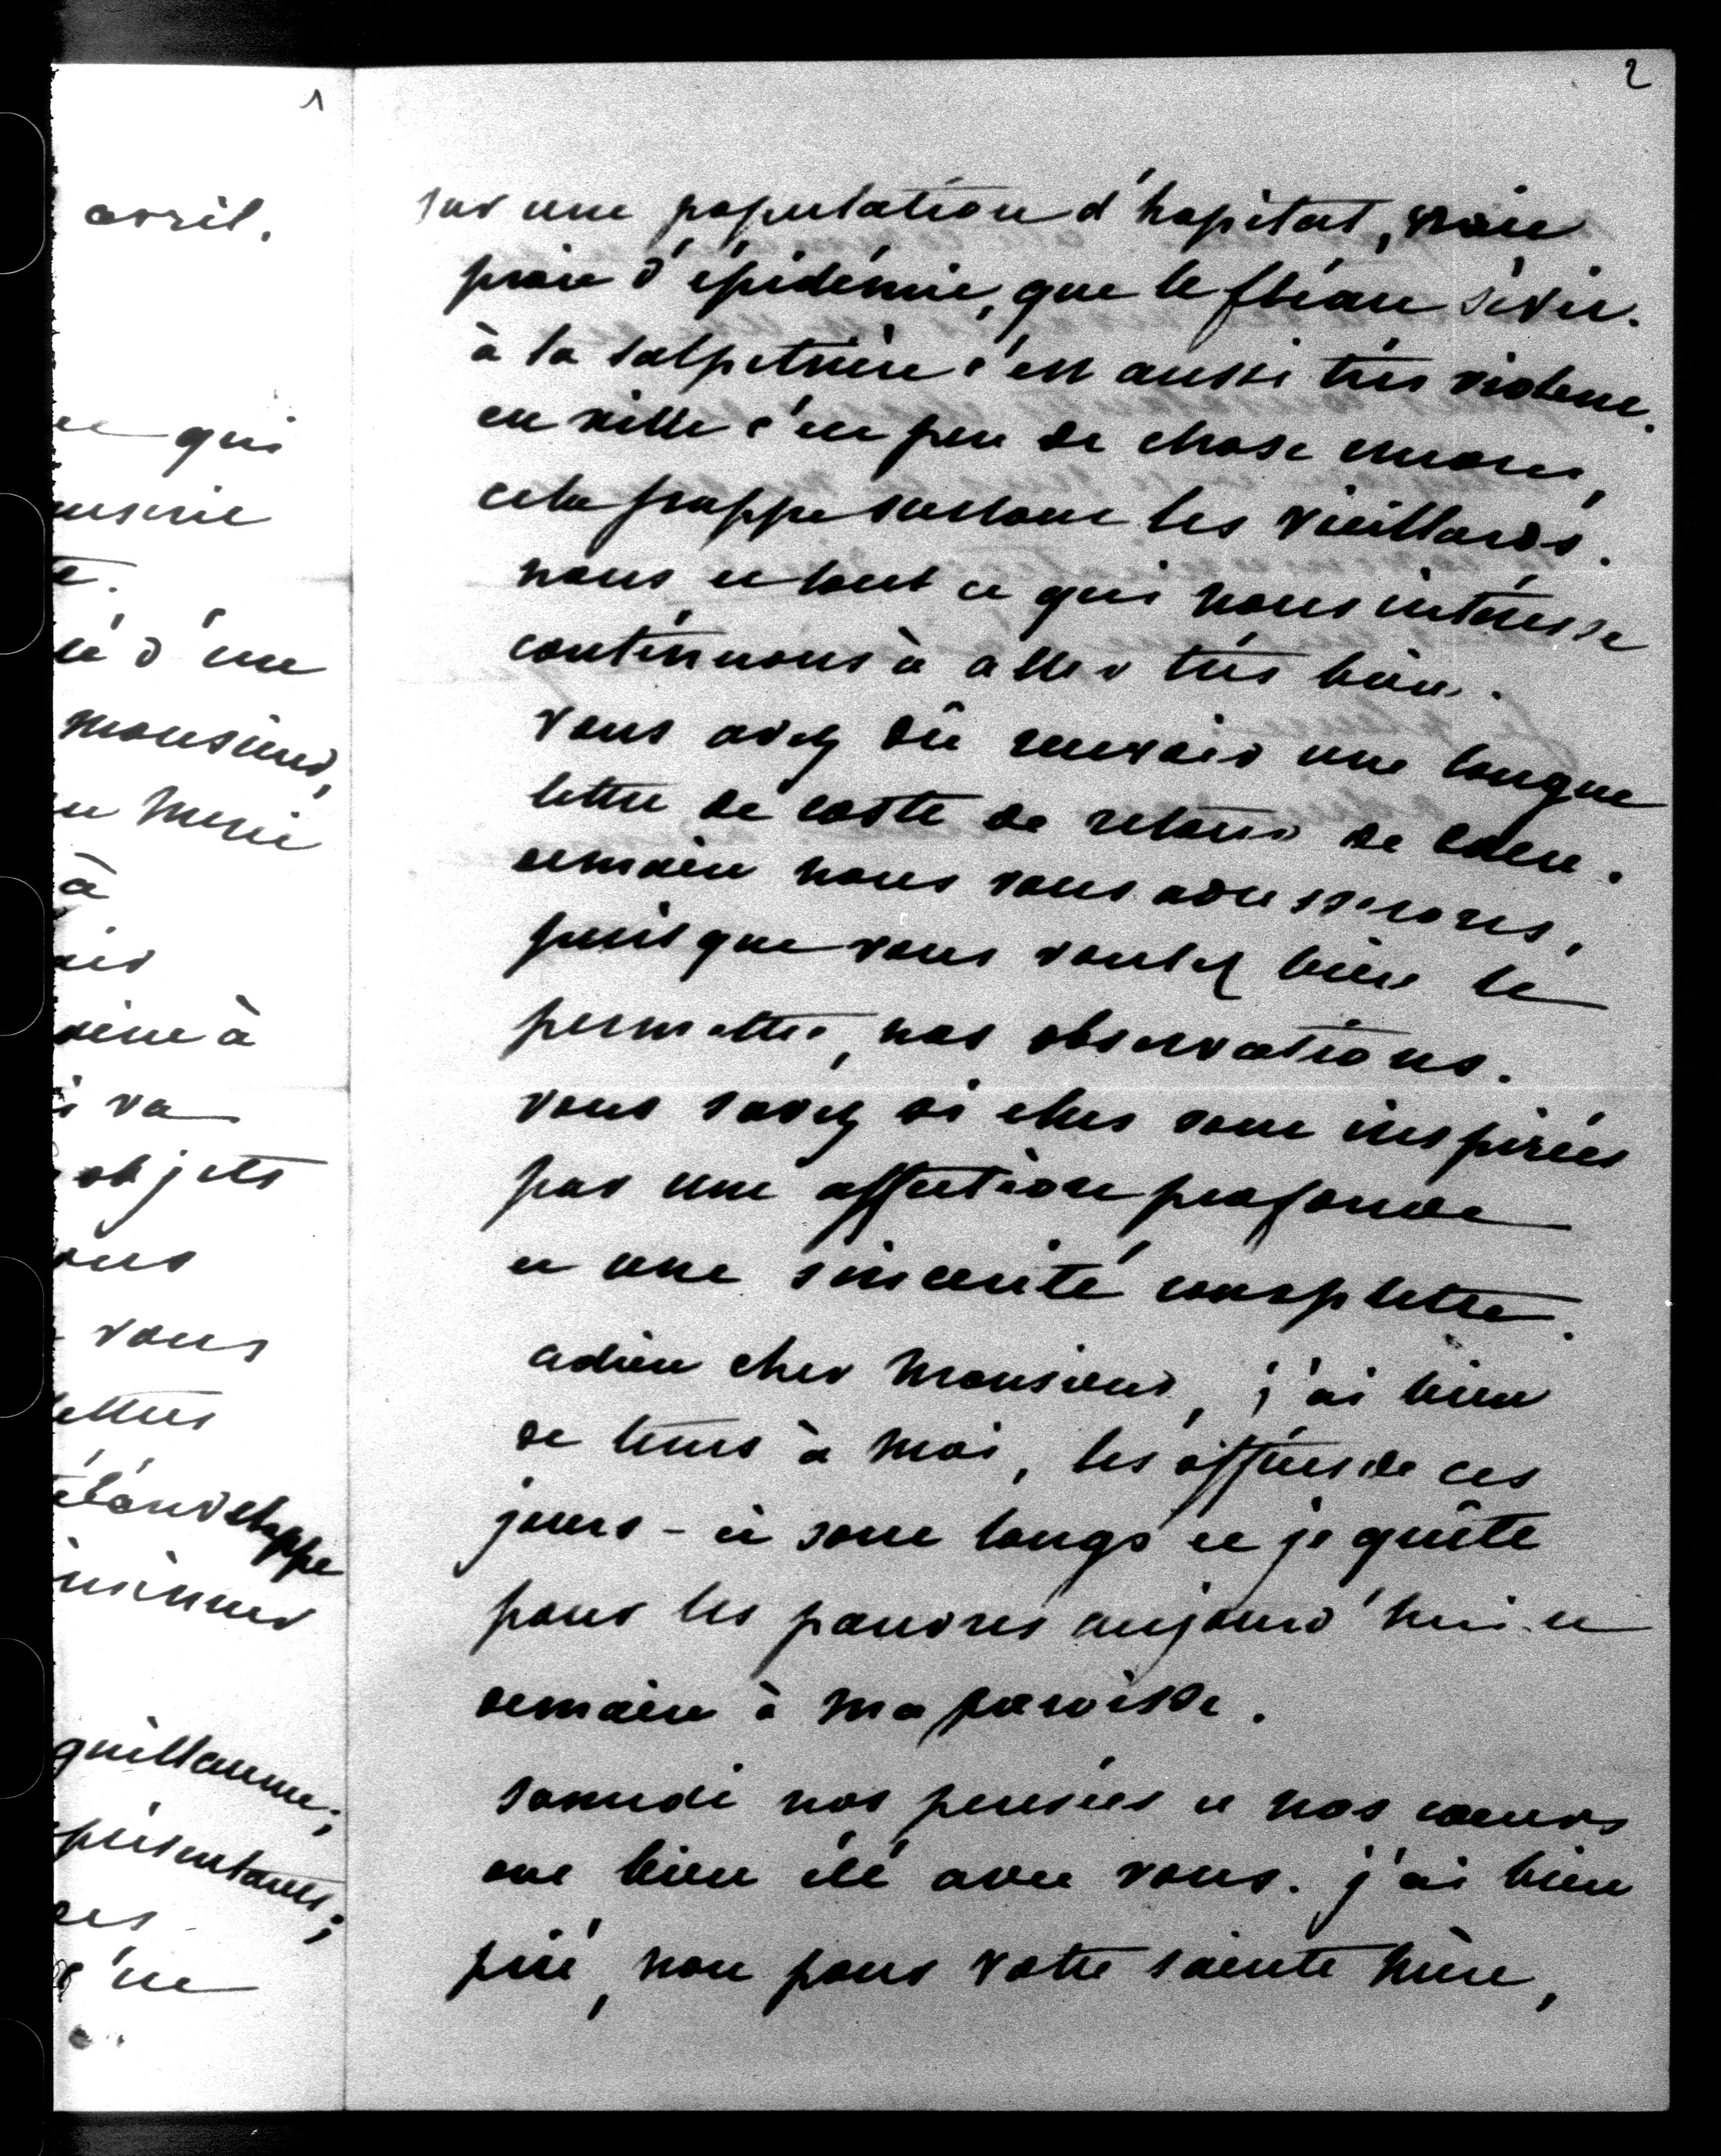 1
avril.
qui
d'une
monsieur,
à
à
va
objets
vous
lettres
guillaume;
2
sur une population d'hopital, vraie
proie d'épidémie, que le fléau sévit.
à la salpetrière c'est aussi très violent.
en ville c'est peu de chose encore,
cela frappe surtout les vieillards.
nous et tout ce qui nous intéresse
continuons à aller très bien.
vous avez dû recevoir une longue
lettre de coste de retour de caen.
demain nous vous adresserons,
puisque vous voulez bien le
permettre, nos observations.
vous savez si elles sont inspirées
par une affection profonde
et une sincérité complette.
adieu cher monsieur, j'ai bien
de tems à moi, les offices de ces
jours-ci sont longs et je quête
pour les pauvres aujourd'hui et
demain à ma paroisse.
samedi nos pensées et nos coeurs
ont bien été avec vous. j'ai bien
prié, non pour votre sainte mère,